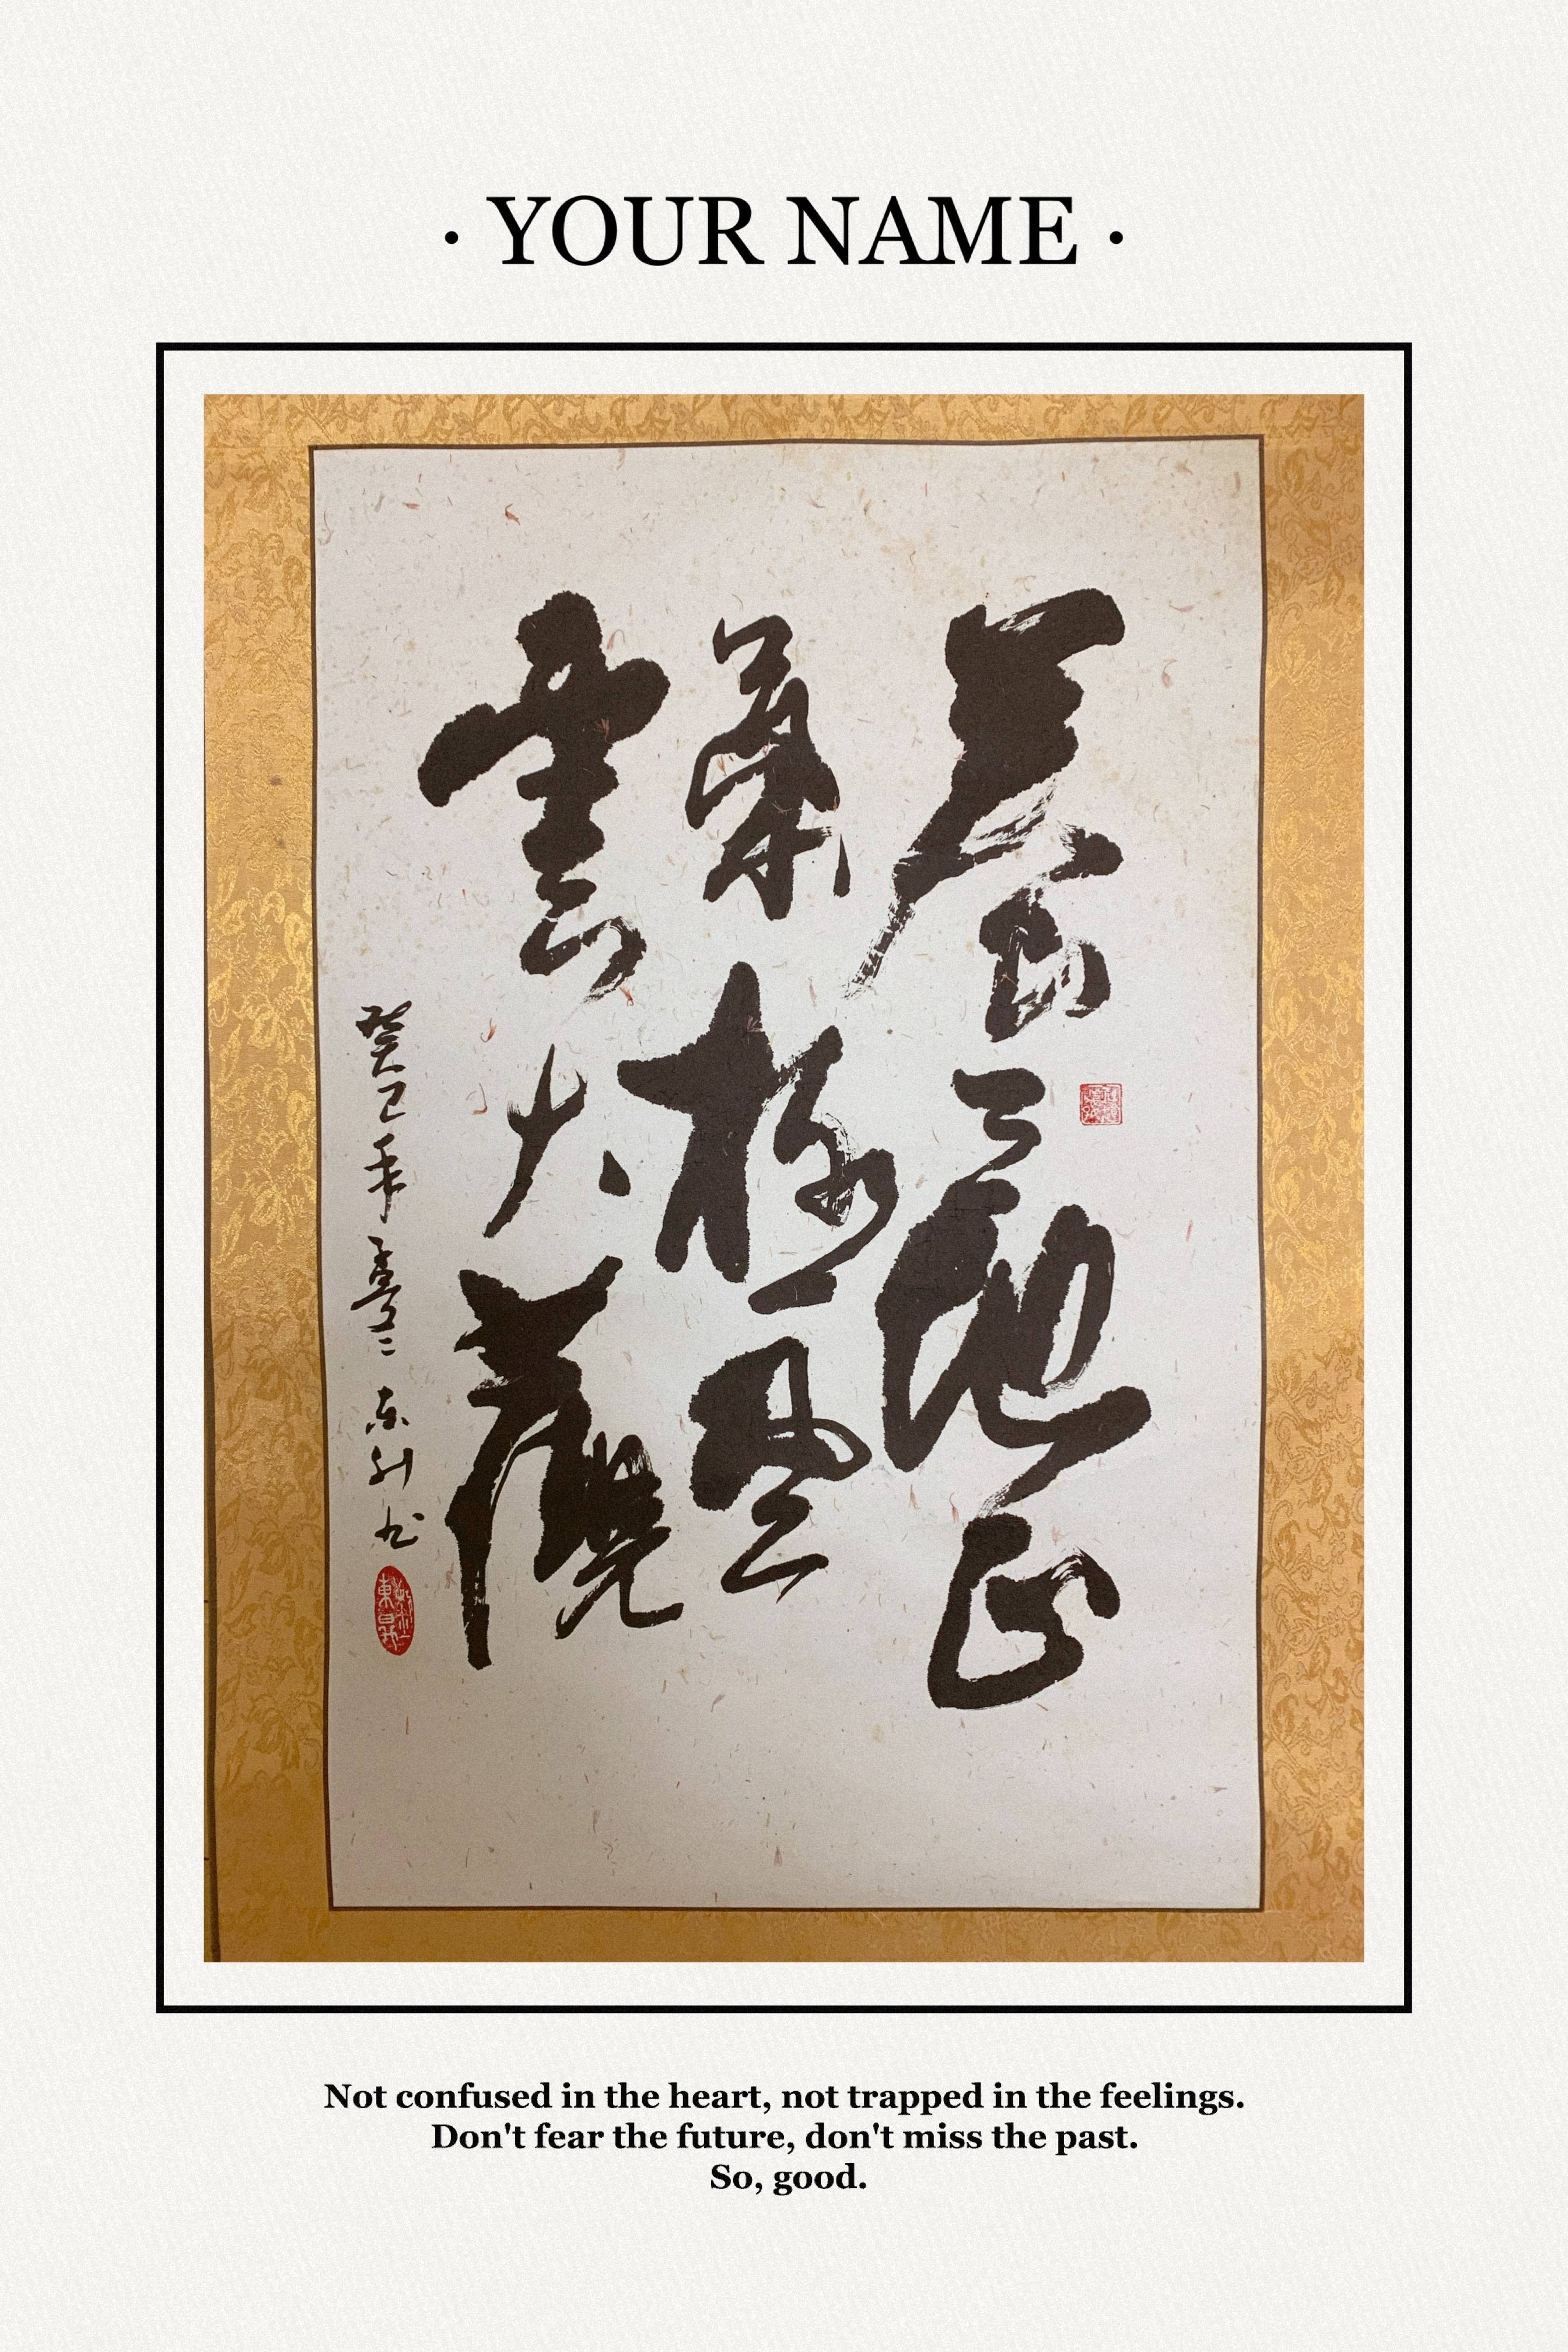 · YOUR NAME ·
養天地正
氣極風
雲大觀
癸巳年 东升书
Not confused in the heart, not trapped in the feelings.
Don't fear the future, don't miss the past.
So, good.